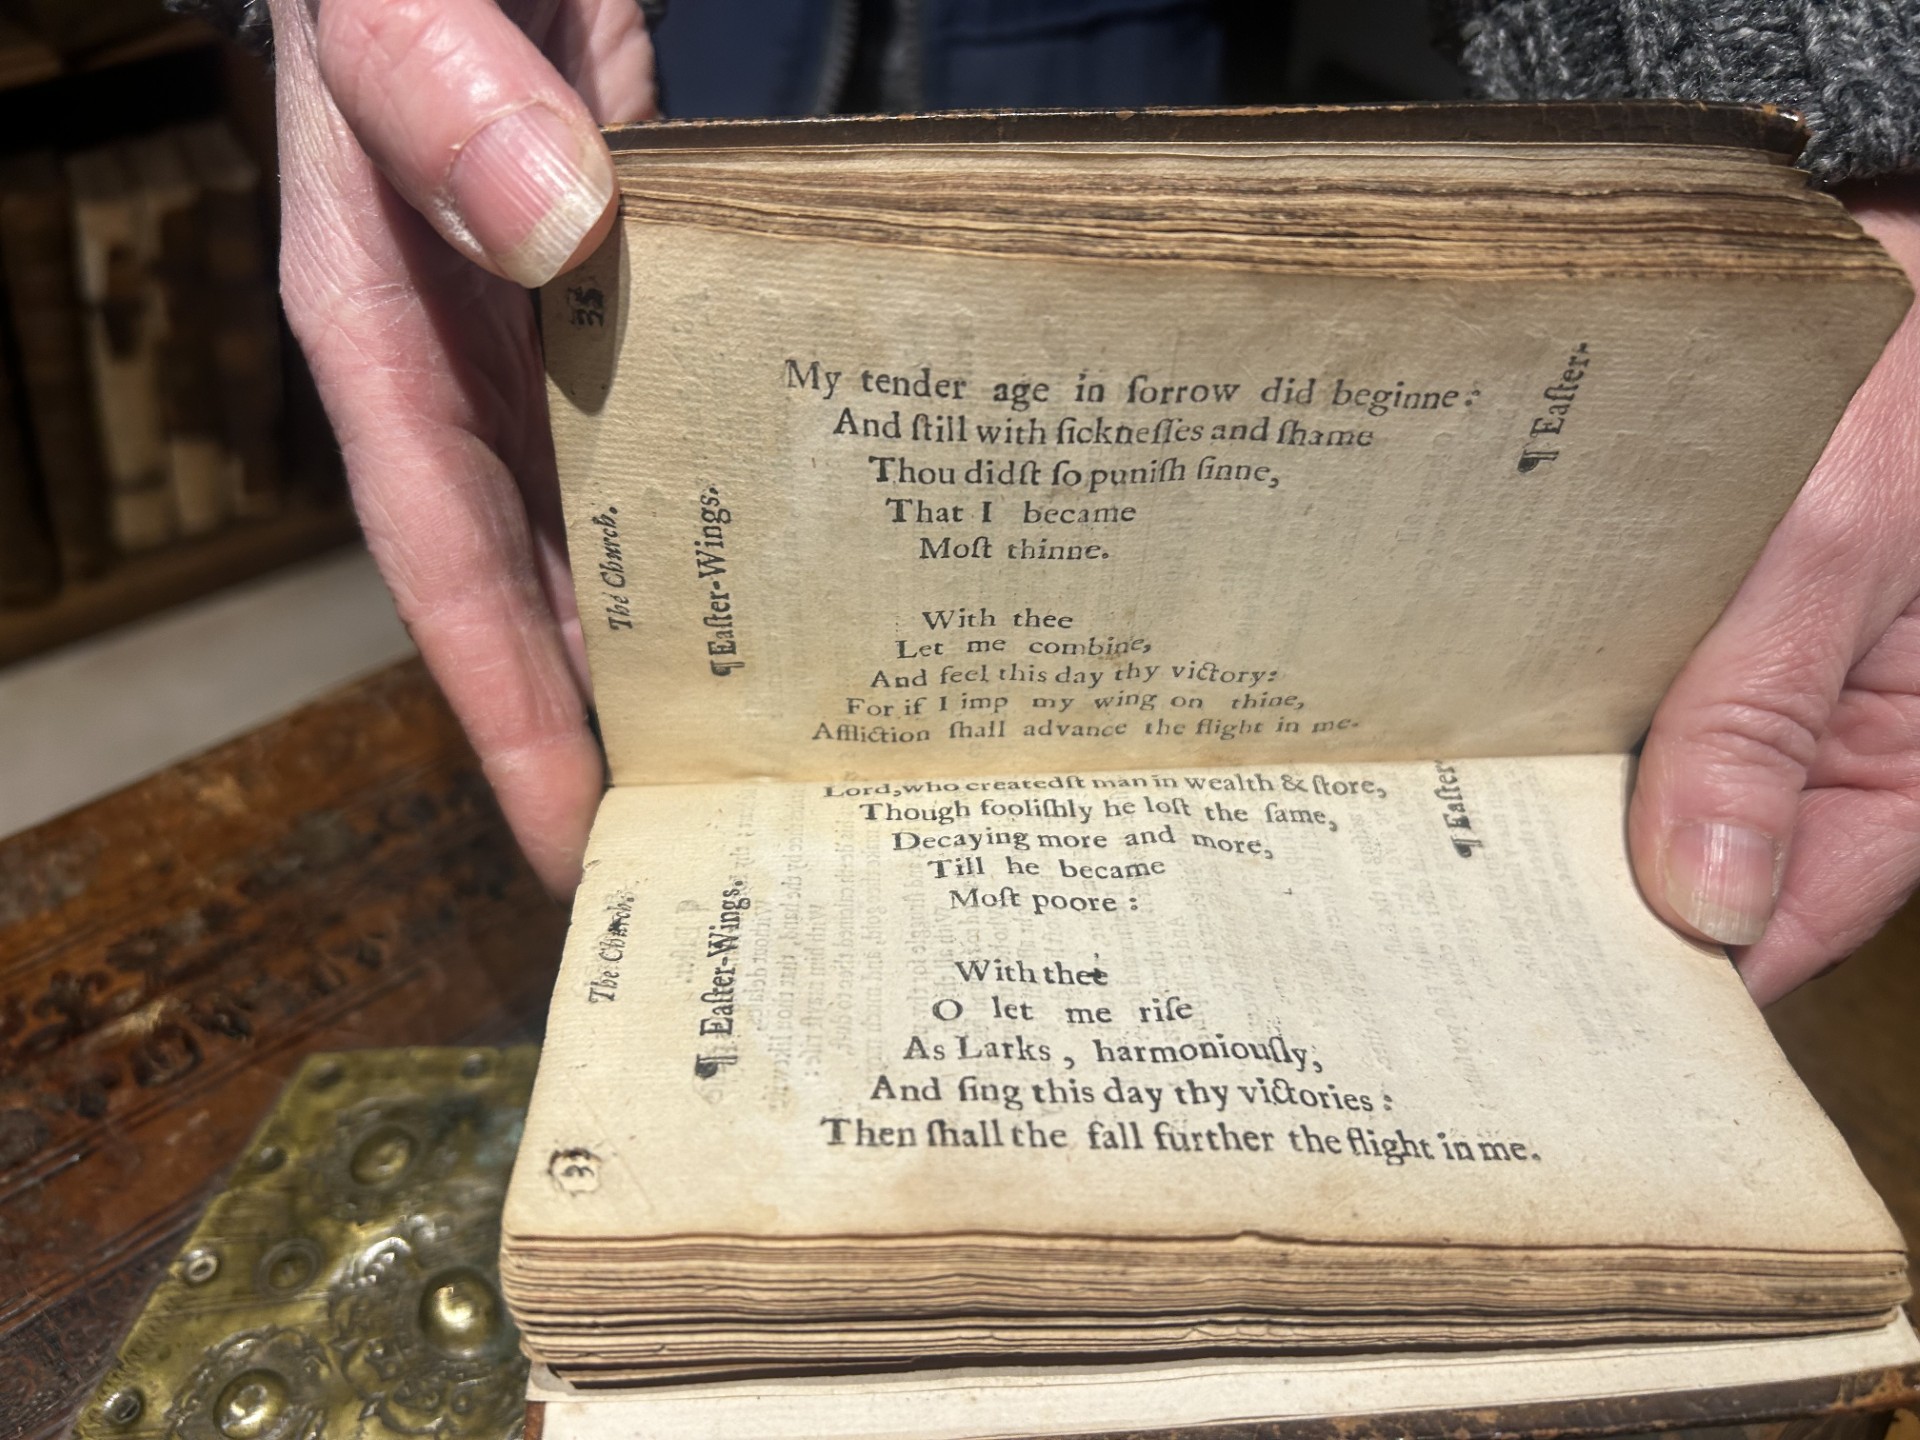 35
The Church.
¶ Eaſter-Wings.
¶ Eaſter.
My tender age in ſorrow did beginne:
And ſtill with ſickneſſes and ſhame
Thou didſt ſo puniſh ſinne,
That I became
Moſt thinne.
With thee
Let me combine,
And feel this day thy victory:
For if I imp my wing on thine,
Affliction ſhall advance the flight in me.
The Church.
¶ Eaſter-Wings.
¶ Eaſter
Lord, who createdſt man in wealth & ſtore,
Though fooliſhly he loſt the ſame,
Decaying more and more,
Till he became
Moſt poore:
With thee
O let me riſe
As Larks, harmoniouſly,
And ſing this day thy victories:
Then ſhall the fall further the flight in me.